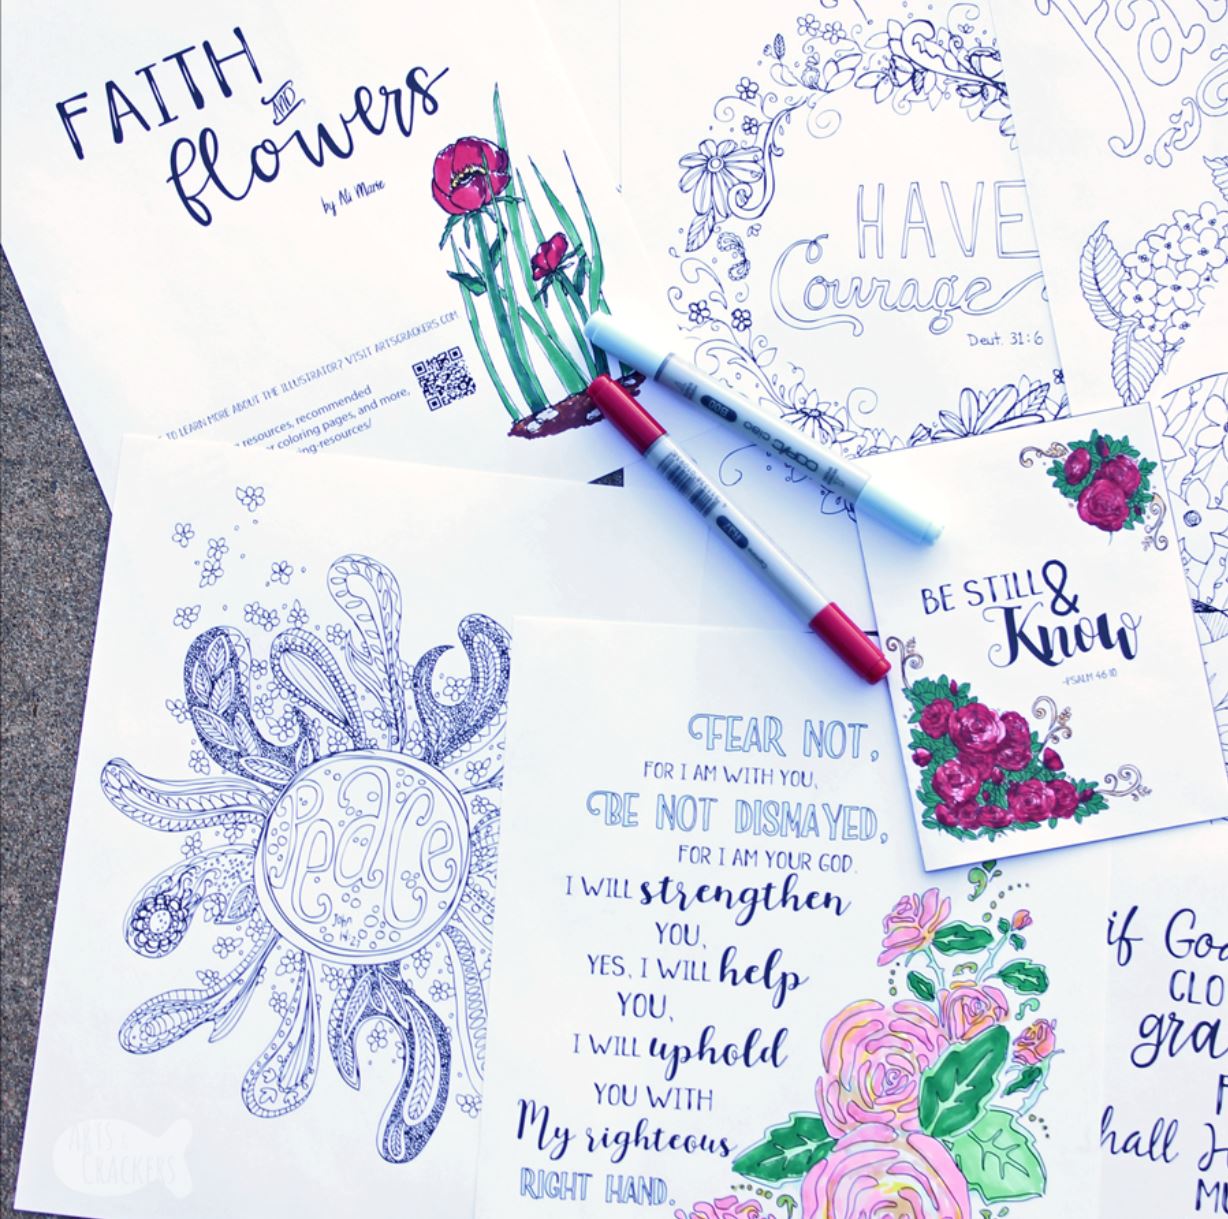 FAITH
AND
flowers
by Ali Marie
TO LEARN MORE ABOUT THE ILLUSTRATOR? VISIT ARTSCRACKERS.COM
resources, recommended
coloring pages, and more,
ng-resources/
HAVE
Courage
Deut. 31:6
copic ciao
BE STILL &
Know
-PSALM 46:10
Peace
John
14:27
FEAR NOT,
FOR I AM WITH YOU,
BE NOT DISMAYED,
FOR I AM YOUR GOD.
I WILL strengthen
YOU,
YES, I WILL help
YOU,
I WILL uphold
YOU WITH
My righteous
RIGHT HAND.
if Go
CLO
gra
F
hall H
MU
ARTS
CRACKERS